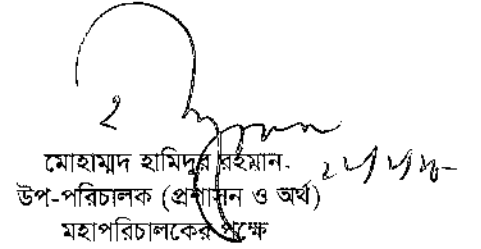 মোহাম্মদ হামিদুর রহমান
উপ-পরিচালক (প্রশাসন ও অর্থ)
মহাপরিচালকের পক্ষে